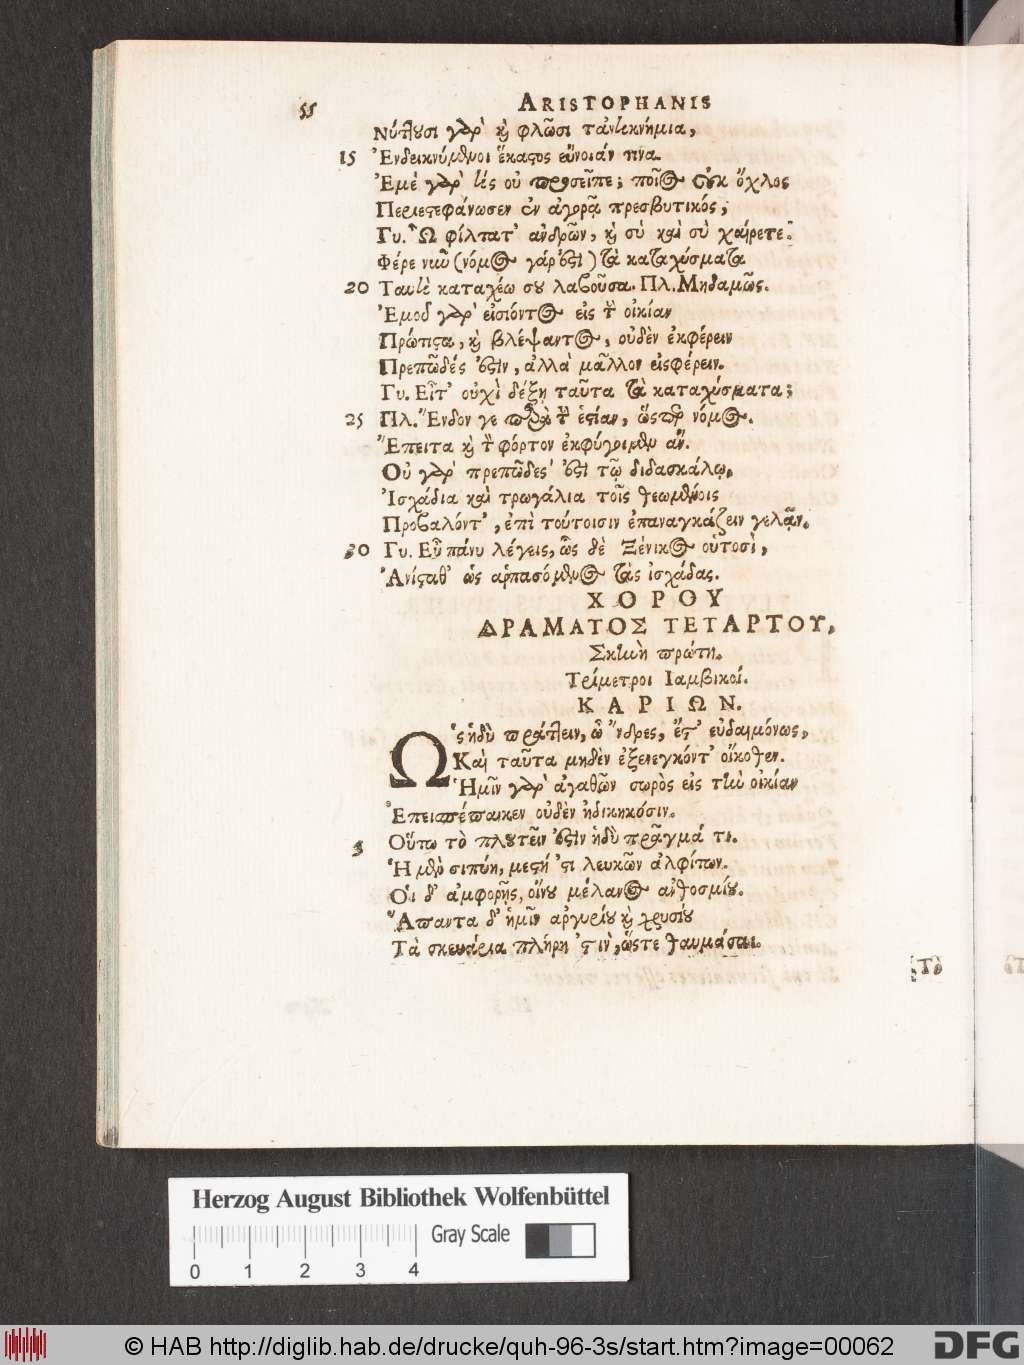 55
ARISTOPHANIS
Νύττουσι γὰρ καὶ φλῶσι τἀντικνήμια,
15 Ἐνδεικνύμενοι ἕκαστος εὔνοιάν τινα.
Ἐμὲ γὰρ τίς οὐ προσεῖπε; ποῖος οὐκ ὄχλος
Περιεστεφάνωσεν ἐν ἀγορᾷ πρεσβυτικός;
Γυ. Ὦ φίλτατ' ἀνδρῶν, καὶ σὺ καὶ σὺ χαίρετε.
Φέρε νιῦ (νόμος γάρ ἐστι) τὰ καταχύσματα
20 Ταυτὶ καταχέω σου λαβοῦσα. Πλ. Μηδαμῶς.
Ἐμοῦ γὰρ εἰσιόντος εἰς τὴν οἰκίαν
Πρώτιστα, καὶ βλέψαντος, οὐδὲν ἐκφέρειν
Πρεπῶδές ἐστιν, ἀλλὰ μᾶλλον εἰσφέρειν.
Γυ. Εἶτ' οὐχὶ δέξῃ ταῦτα τὰ καταχύσματα;
25 Πλ. Ἔνδον γε παρὰ τὴν ἑστίαν, ὥσπερ νόμος.
Ἔπειτα καὶ τὸν φόρτον ἐκφύγοιμεν ἄν.
Οὐ γὰρ πρεπῶδές ἐστι τῷ διδασκάλῳ,
Ἰσχάδια καὶ τρωγάλια τοῖς θεωμένοις
Προβαλόντ', ἐπὶ τούτοισιν ἐπαναγκάζειν γελᾷν.
30 Γυ. Εὖ πάνυ λέγεις, ὡς δὲ Ξένικος οὑτοσὶ,
Ἀνίσταθ' ὡς ἁρπασόμενος τὰς ἰσχάδας.
ΧΟΡΟΥ
ΔΡΑΜΑΤΟΣ ΤΕΤΑΡΤΟΥ,
Σκηνὴ πρώτη.
Τρίμετροι Ἰαμβικοί.
ΚΑΡΙΩΝ.
Ὡς ἡδὺ πράττειν, ὦ ἄνδρες, ἔστ' εὐδαιμόνως,
Καὶ ταῦτα μηδὲν ἐξενεγκόντ' οἴκοθεν.
Ἡμῖν γὰρ ἀγαθῶν σωρὸς εἰς τὴν οἰκίαν
Ἐπεισπέπαικεν οὐδὲν ἠδικηκόσιν.
5 Οὕτω τὸ πλουτεῖν ἐστὶν ἡδὺ πρᾶγμά τι.
Ἡ μὲν σιπύη, μεστή 'στι λευκῶν ἀλφίτων.
Οἱ δ' ἀμφορῆς, οἴνου μέλανος ἀνθοσμίου.
Ἅπαντα δ' ἡμῖν ἀργυρίου καὶ χρυσίου
Τὰ σκευάρια πλήρη 'στὶν, ὥστε θαυμάσαι.
Τὸ
Herzog August Bibliothek Wolfenbüttel
0 1 2 3 4
Gray Scale
© HAB http://diglib.hab.de/drucke/quh-96-3s/start.htm?image=00062
DFG